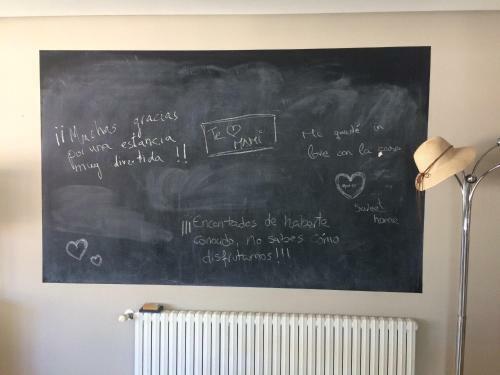 ¡¡Muchas gracias
por una estancia
muy divertida !!
Te ♡
MAMI
Me quedé in
love con la casa
sweet
home
¡¡¡Encantados de haberte
conocido, no sabes cómo
disfrutamos!!!